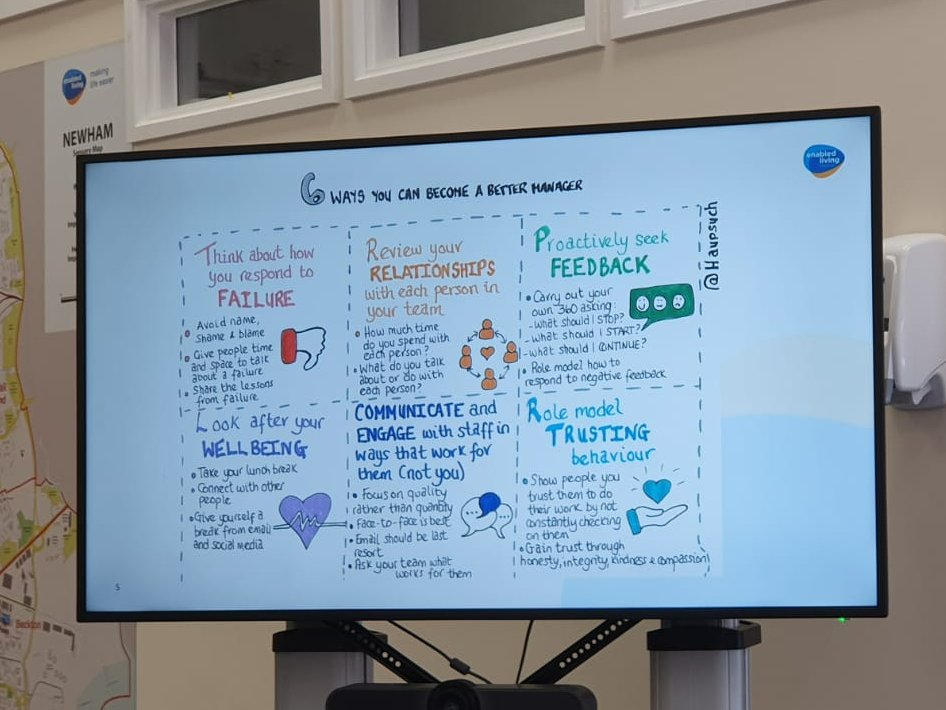 enabled
living
making
life easier
NEWHAM
enabled
living
6 WAYS YOU CAN BECOME A BETTER MANAGER
@Haypsych
Think about how
you respond to
FAILURE
• Avoid name,
shame & blame
• Give people time
and space to talk
about a failure
• Share the lessons
from failure
Review your
RELATIONSHIPS
with each person in
your team
• How much time
do you spend with
each person?
• What do you talk
about or do with
each person?
Proactively seek
FEEDBACK
• Carry out your
own 360 asking:
- What should I STOP?
- What should I START?
- What should I CONTINUE?
• Role model how to
respond to negative feedback
Look after your
WELLBEING
• Take your lunch break
• Connect with other
people
• Give yourself a
break from email
and social media
COMMUNICATE and
ENGAGE with staff in
ways that work for
them (not you)
• Focus on quality
rather than quantity
• Face-to-face is best
• Email should be last
resort
• Ask your team what
works for them
Role model
TRUSTING
behaviour
• Show people you
trust them to do
their work by not
constantly checking
on them
• Gain trust through
honesty, integrity, kindness & compassion
5
Beckton